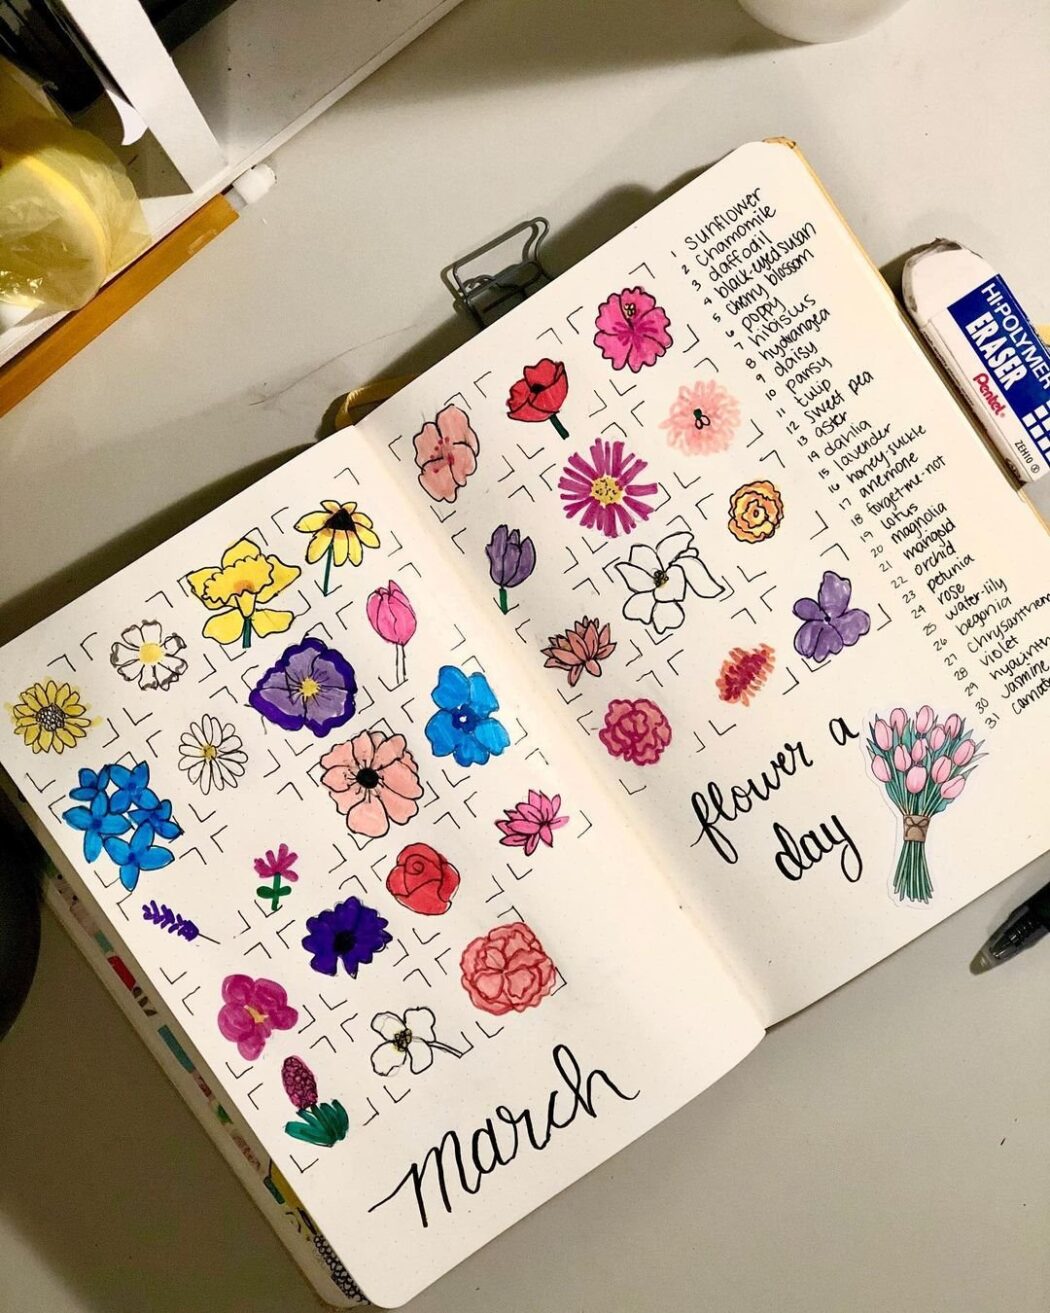 1 sunflower
2 chamomile
3 daffodil
4 black-eyed susan
5 cherry blossom
6 poppy
7 hibiscus
8 hydrangea
9 daisy
10 pansy
11 tulip
12 sweet pea
13 aster
14 dahlia
15 lavender
16 honey-suckle
17 anemone
18 forget-me-not
19 lotus
20 magnolia
21 marigold
22 orchid
23 petunia
24 rose
25 water-lily
26 begonia
27 chrysanthem
28 violet
29 hyacinth
30 Jasmine
31 carnat
flower a
day
march
HI-POLYMER
ERASER
Pentel
ZEH10